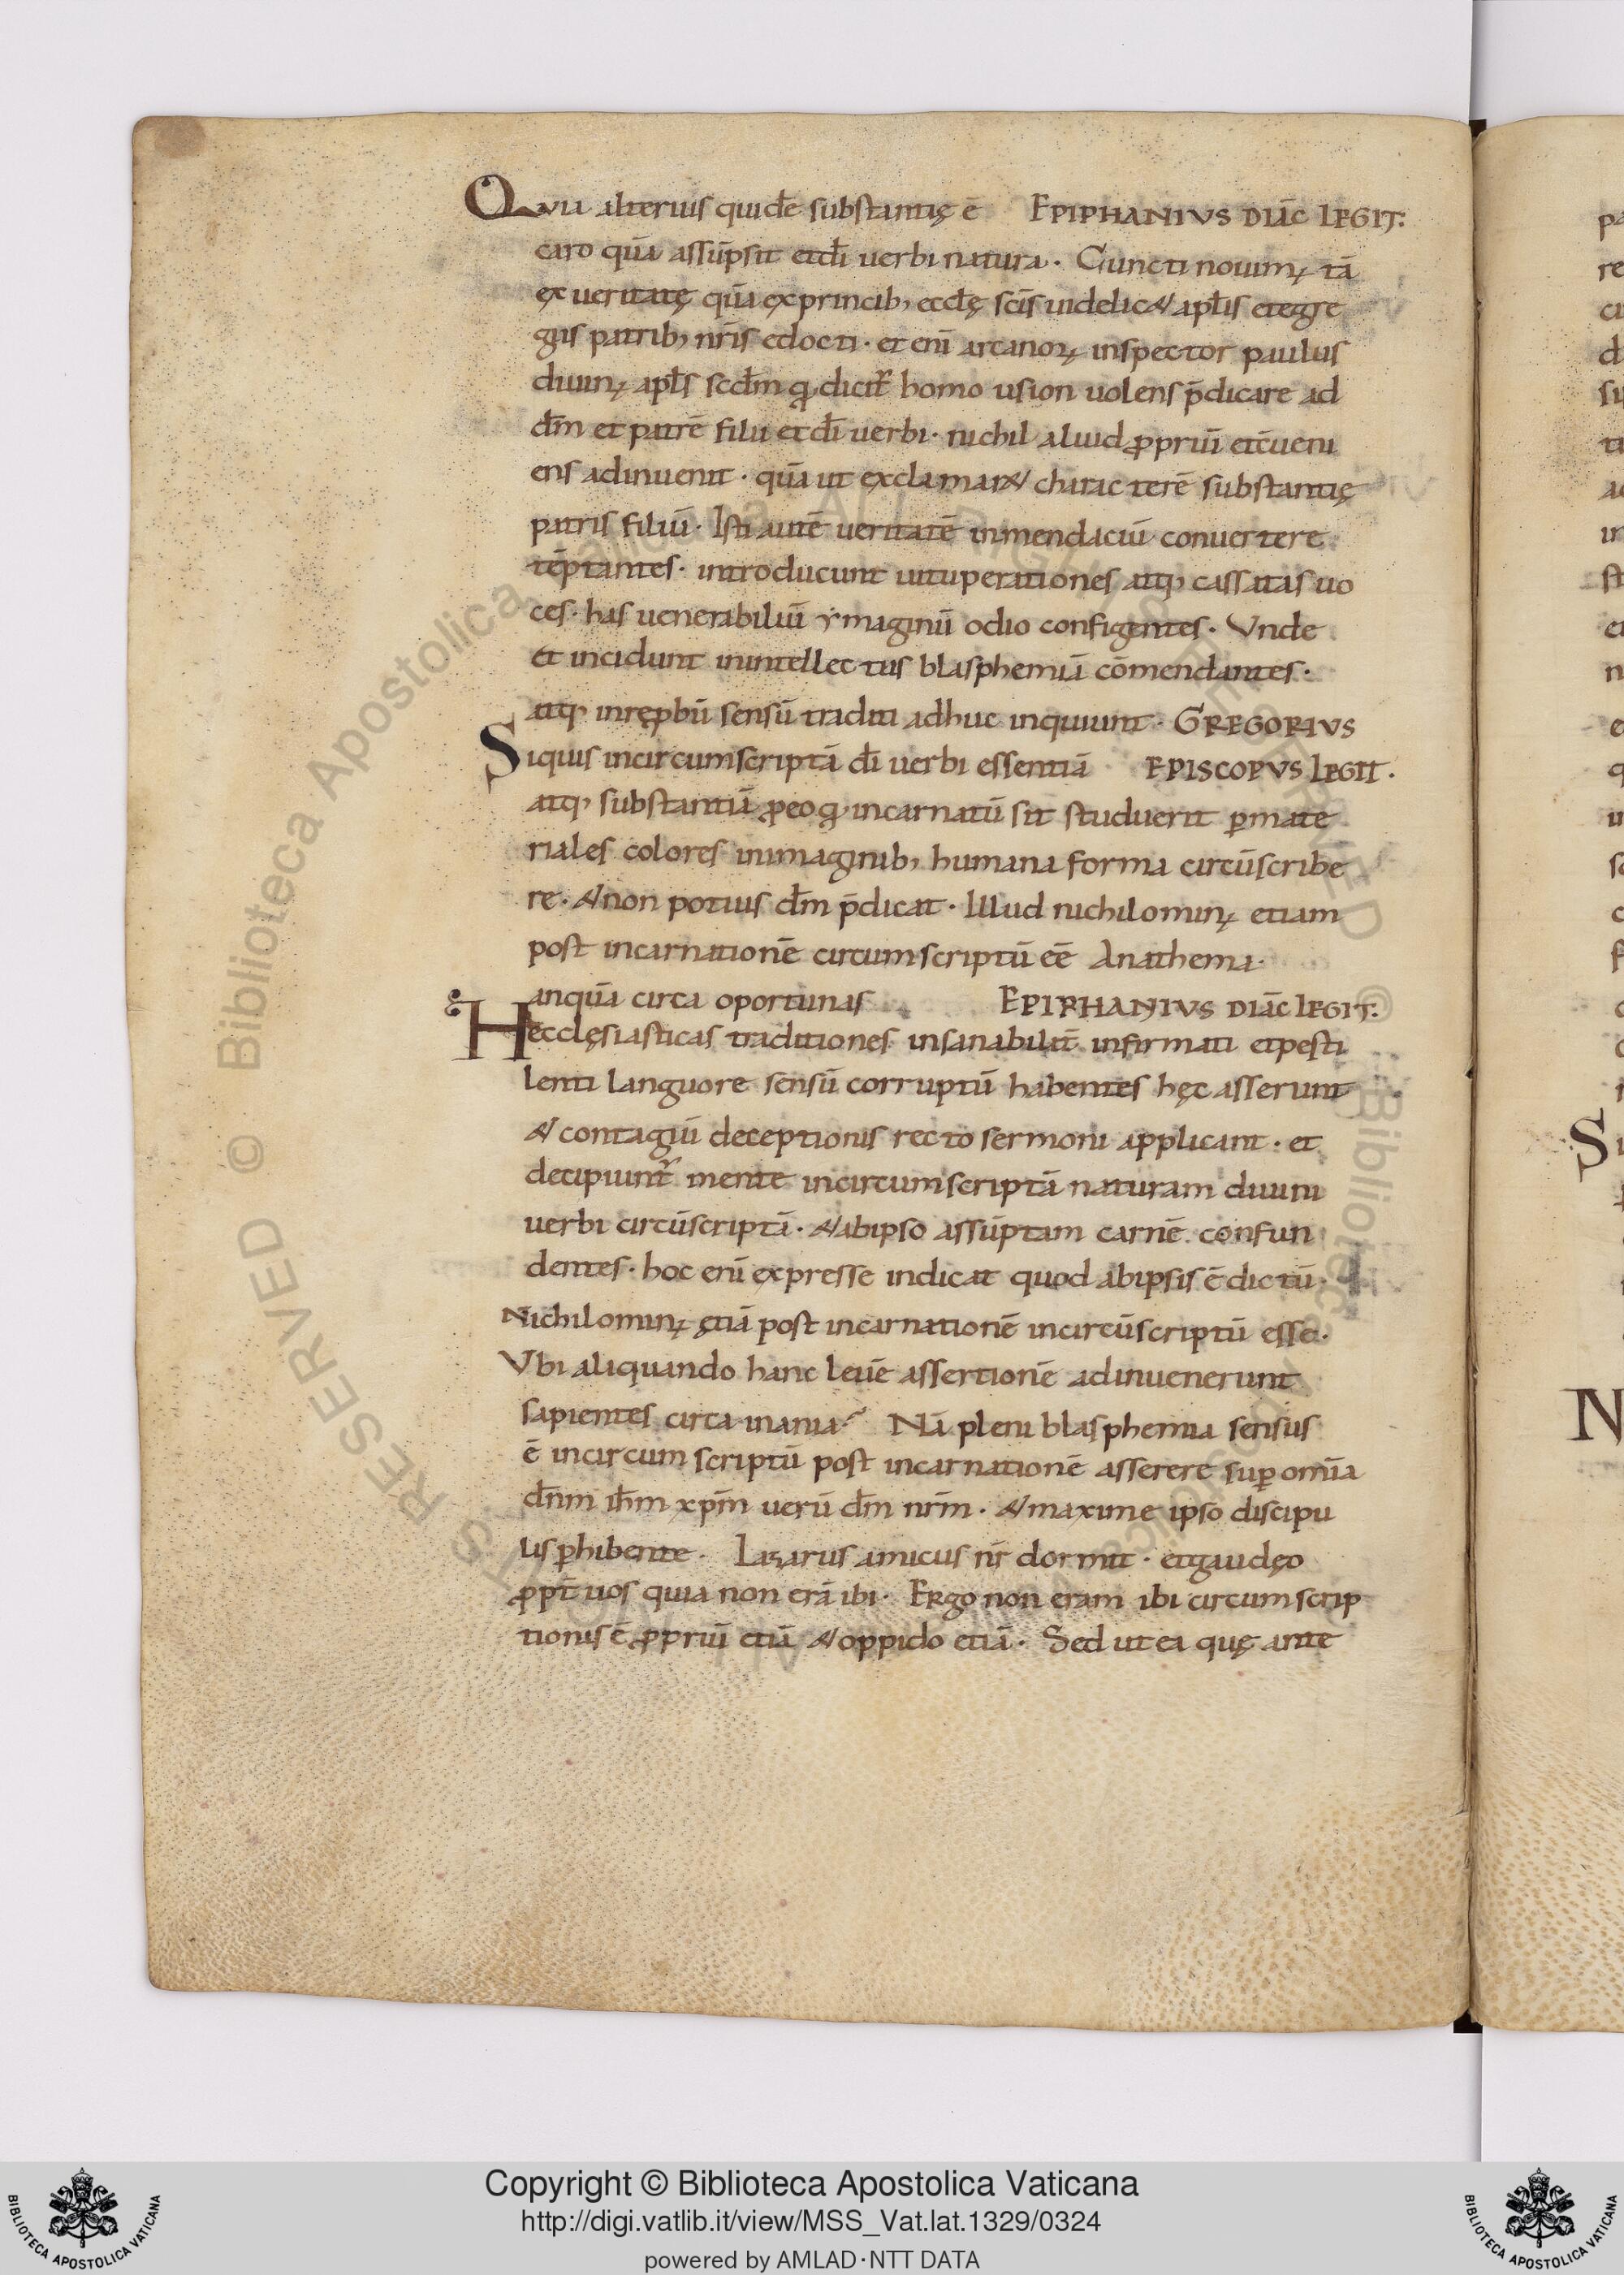 Quia alterius quidē substantię ē EPIPHANIVS DIAC̄ LEGIT:
caro quā assūpsit et dī uerbi natura. Cuncti nouimꝰ tā
ex ueritatę quā ex princibꝫ eccl̄ę scīs uidelicet apl̄is et egre
giis patribꝫ nr̄is edocti. et enī arcanoꝝ inspector paulus
diuinꝰ apl̄s scdm̄ qđ dicit̄ homo usion uolens p̄dicare ad
dm̄ et patrē filii et dī uerbi. nichil aliud ꝓpriū et c̄ueni
ens adinuenit. quā ut exclamaret characterē substantię
patris filiū. Isti autē ueritatē in mendaciū conuertere
tēptantes. introducunt uituperationes atqꝫ cassatas uo
ces. has uenerabiliū ymaginū odio configentes. Vnde
et incidunt in intellectus blasphemiā cōmendantes.
atqꝫ in rępbū sensū traditi adhuc inquiunt. GREGORIVS
Siquis incircumscriptā dī uerbi essentiā EPISCOPVS LEGIT.
atqꝫ substantiā ꝓ eo qđ incarnatū sit studuerit ꝑ mate
riales colores in imaginibꝫ humana forma circūscribe
re. et non potius dm̄ p̄dicat. Illud nichilominꝰ etiam
post incarnationē circumscriptū eē Anathema.
anquā circa oportunas EPIPHANIVS DIAC̄ LEGIT:
H ecclęsiasticas traditiones insanabilit̄ infirmati et pesti
lenti languore sensū corruptū habentes hęc asserunt
et contagiū deceptionis recto sermoni applicant. et
decipiunt̄ mente incircumscriptā naturam diuini
uerbi circūscriptā. et ab ipso assūptam carnē confun
dentes. hoc enī expresse indicat quod ab ipsis ē dictū.
Nichilominꝰ ętiā post incarnationē incircūscriptū esse.
Vbi aliquando hanc leuē assertionē adinuenerunt
sapientes circa inania? Nā pleni blasphemia sensus
ē incircumscriptū post incarnationē asserere suꝑ omīa
dn̄m ih̄m xp̄m uerū dm̄ nr̄m. et maxime ipso discipu
lis ꝑhibente. Lazarus amicus nr̄ dormit. et gaudęo
ꝓpt̄ uos quia non erā ibi. Ergo non eram ibi circumscrip
tionis ē ꝓpriū etiā et oppido etiā. Sed ut ea quę ante
Copyright © Biblioteca Apostolica Vaticana
http://digi.vatlib.it/view/MSS_Vat.lat.1329/0324
powered by AMLAD·NTT DATA
BIBLIOTECA APOSTOLICA VATICANA
BIBLIOTECA APOSTOLICA VATICANA